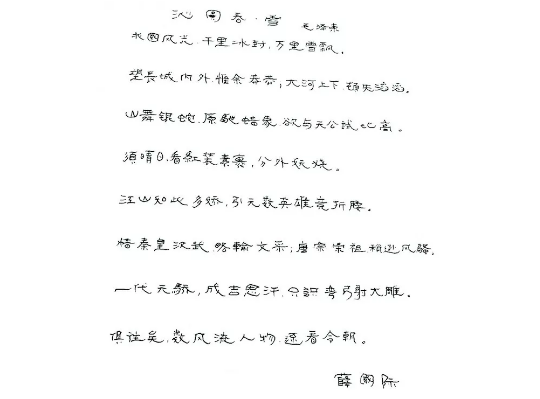 沁園春·雪 毛泽东
北國风光.千里冰封,万里雪飘.
望長城内外.惟余莽莽,大河上下.顿失滔滔.
山舞银蛇.原驰蜡象.欲与天公試比高.
須晴日.看紅装素裹,分外妖娆.
江山如此多娇,引无数英雄竞折腰.
惜秦皇汉武.略輸文采;唐宗宋祖.稍逊风騷.
一代天驕,成吉思汗.只識弯弓射大雕.
俱往矣.数风流人物.还看今朝.
薛國際